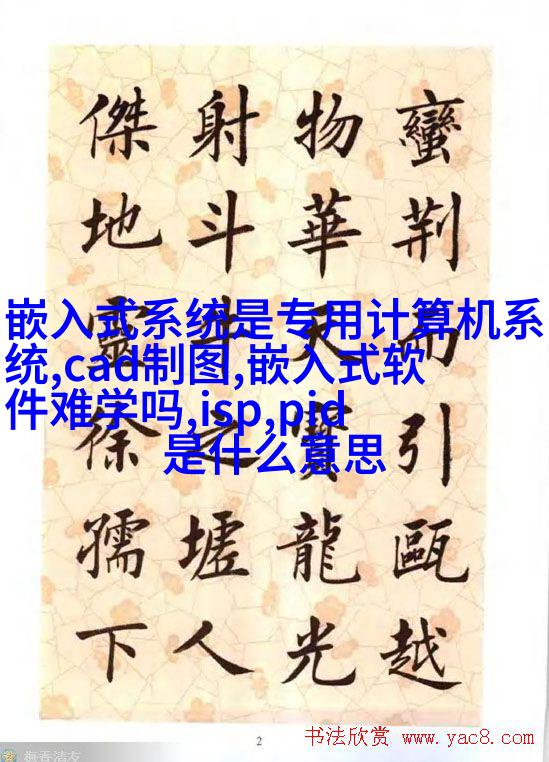 蠻荆而引甌越
物華天寶龍光
射斗牛之墟人
傑地靈徐孺下
嵌入式系统是专用计算机系
统,cad制图,嵌入式软
件难学吗,isp,pid
是什么意思
2
书法欣赏 www.yac8.com
梅香清友